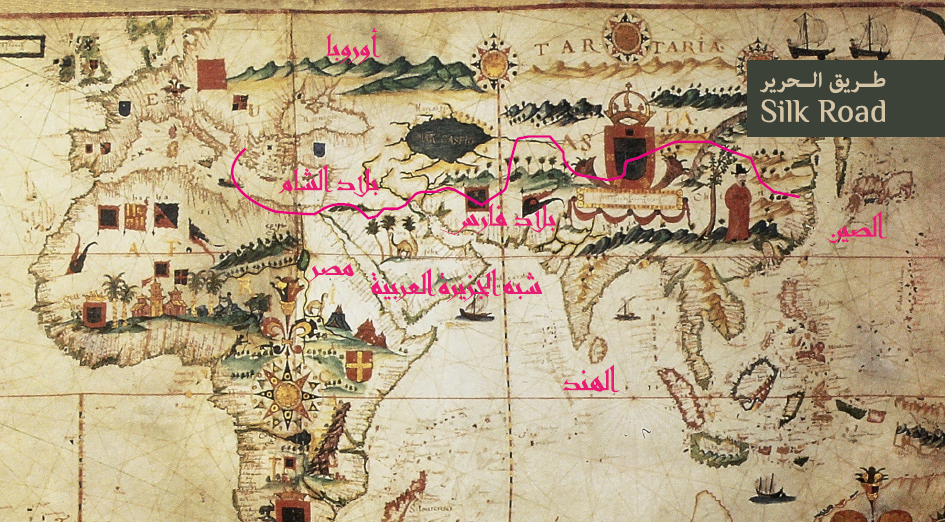 أوروبا
TARTARIA
طريق الحرير
Silk Road
ASIA
بلاد الشام
بلاد فارس
الصين
مصر
شبه الجزيرة العربية
الهند